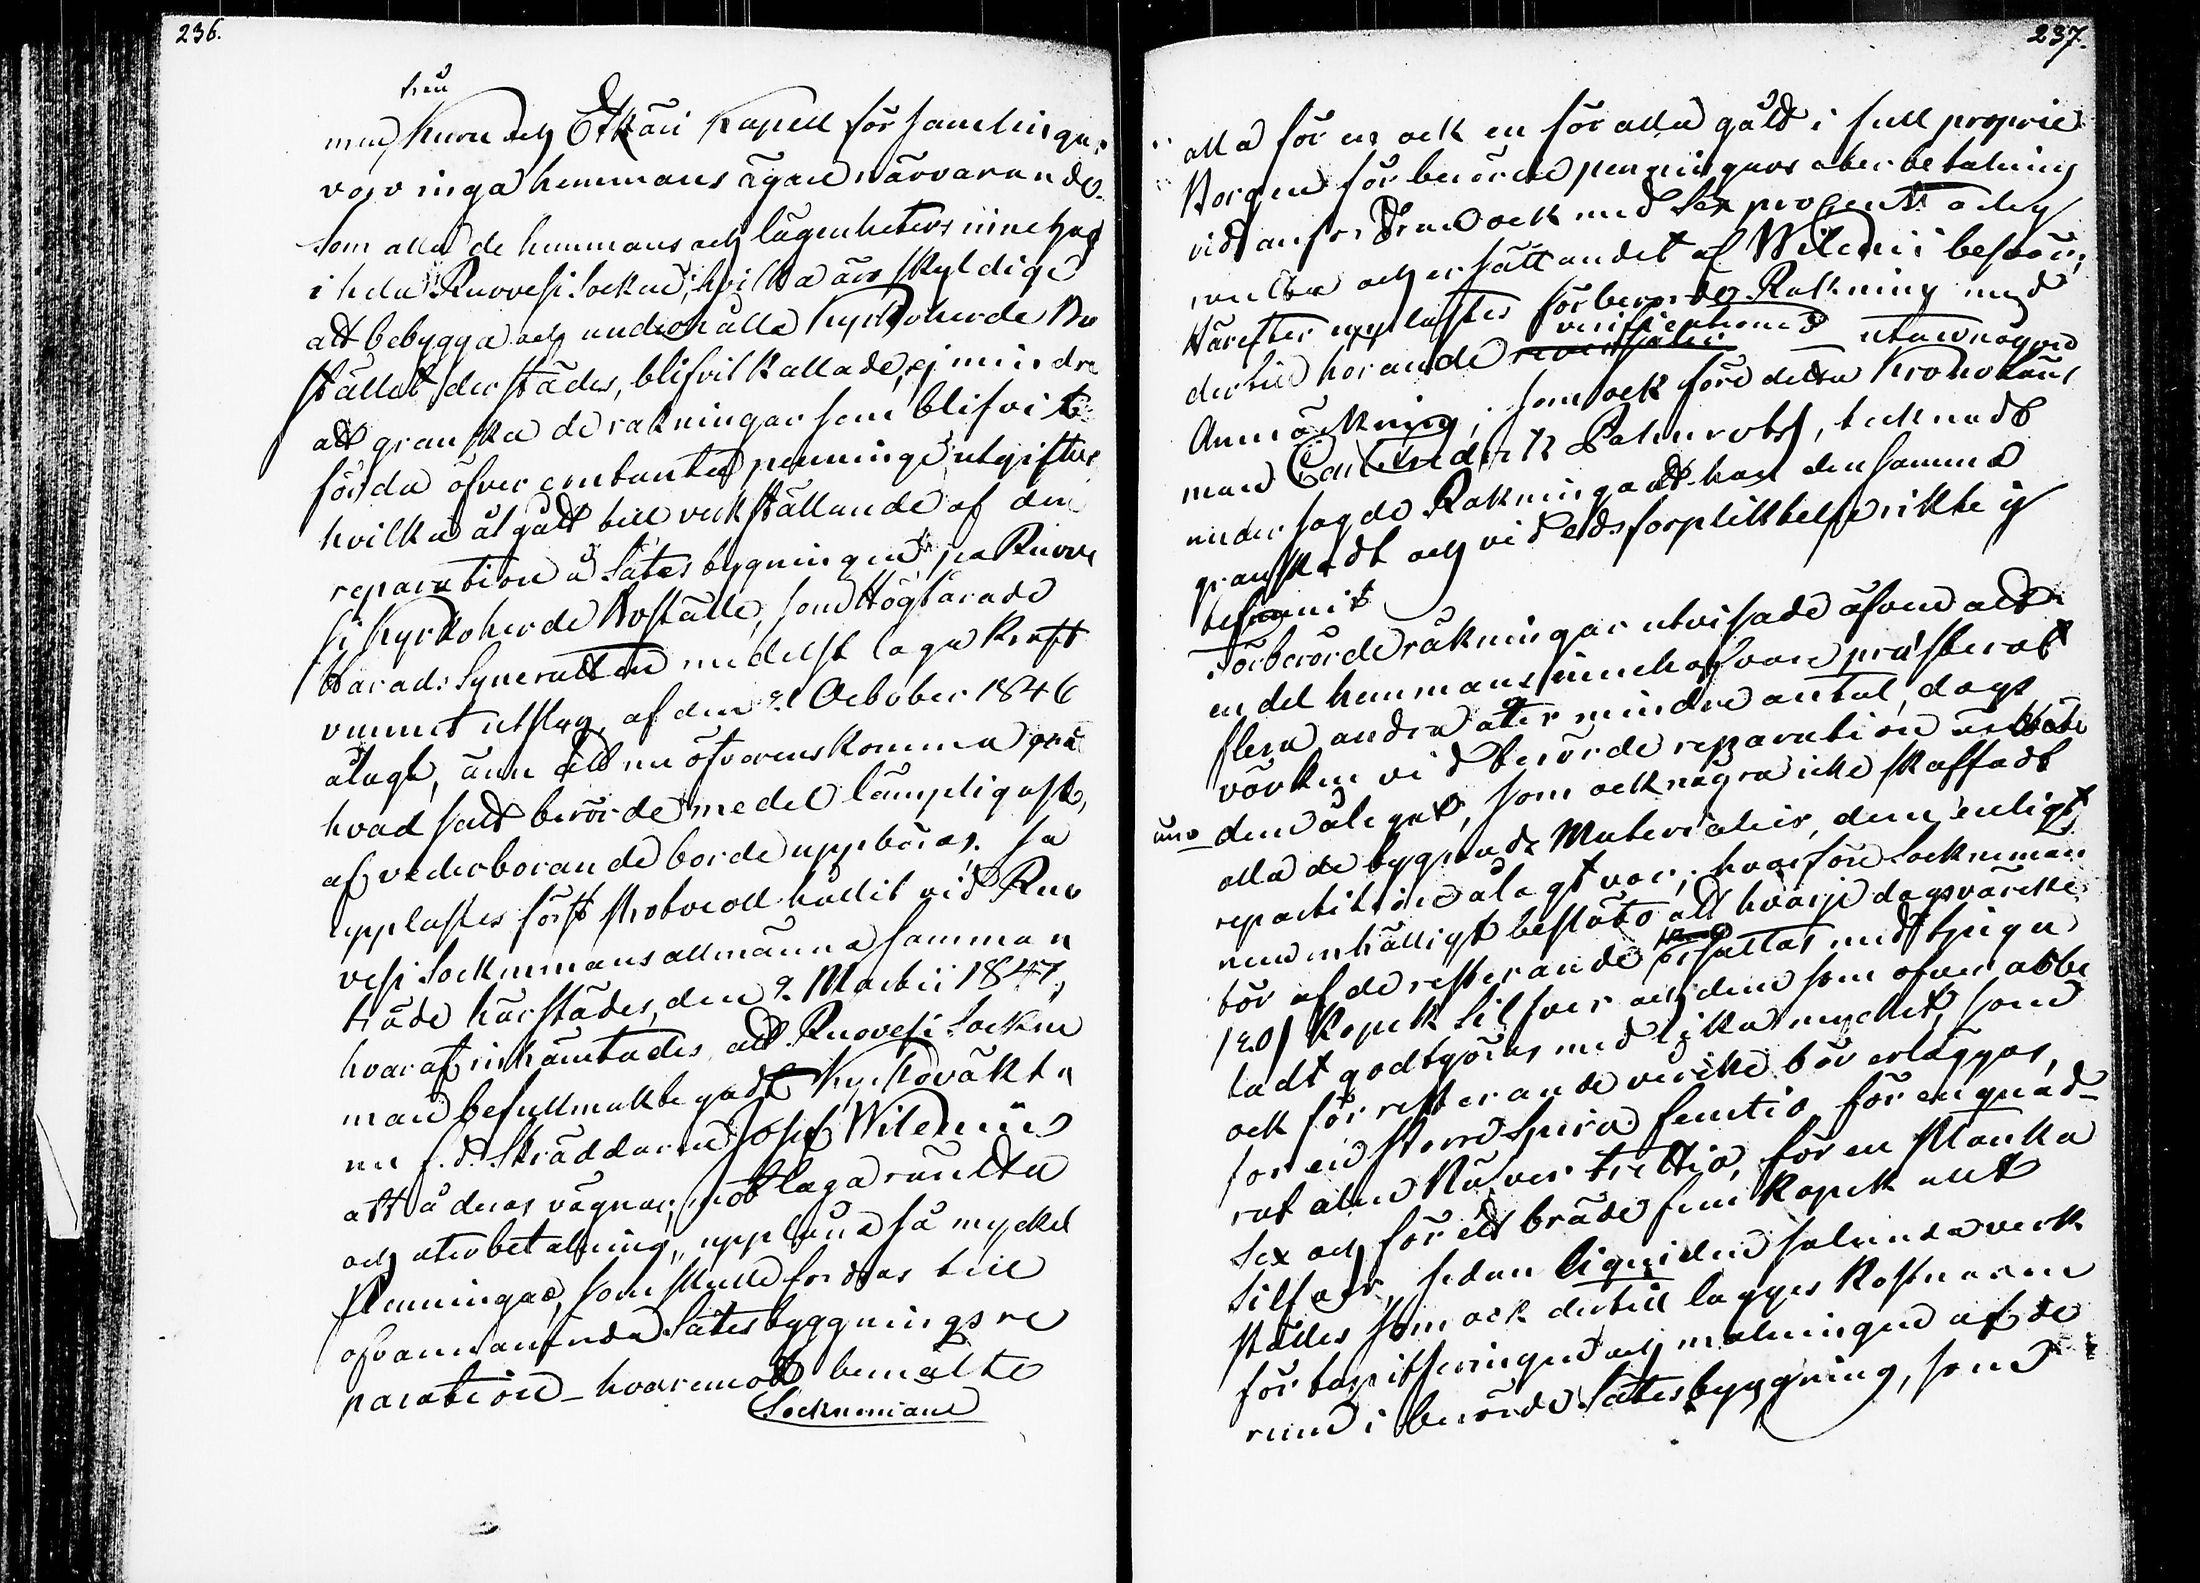 236.
från
men Kuru och Etkäri Kapell församlingar
vorv inga hemmans ägare närvarande
som alla de hemmans och lägenheters innehaf
i hela Ruovesi Socken, hvilka äro skyldige
att bebygga och underhålla Kyrkoherde Bo
stället derstädes, blifvit kallade, ej mindre
att granska de räkningar som blifvit
förda öfver contanta penninge utgifter
hvilka åtgått till verkställande af den
reparation å Sätesbygningen på Ruove
si Kyrkoherde Boställe, som Höglärade
Härads Synerätten medelst laga kraft
vunnet utslag af den 21 October 1846
ålagt, änn att nu öfverenskomma på
hvad satt berörde medel lämpligast,
af vederborande borde uppbäras. Så
upplästes först Protocoll hållit vid Ruo
vesi Socknemans allmänna samman
träde härstädes, den 9. Martii 1847,
hvaraf inhämtades att Ruovesi Sockne
man befullmäktegadt Kyrkoväkta
ren f. d. Skräddaren Josef Wilenius
att å deras vägnar, mot laga ränta
och återbetalning, upplåna så myckel
Penningar, som skulle fordras till
ofvannämnda Sätesbyggnings re
paration – hvaremott bemälte
Socknemäne
237.
alla för en ock en för alla gådt i full proprie
Borgen för berörde penningars åter betalning
vid anfordran ock med Sex procent årlig
ränta och ersättandet af Wilenii besvär;
Härefter upplästes förberörde Räkning med
verificationer
dertill hörande utan någon
Anmärkning, som ock före detta Krono Läns
man Carl Fredrik Palmroth, tecknadt
under sagde Räkning att han densamma
granskadt och vid edsförpliktelse riktig
befunnit
Förberörde räkningar utvisade äfven att
en del hemmans innehafvare præsterat
flera andra åter mindre antal, dags
värken vid berörde reparation
än dem ålegat, som ock några icke skaffadt
alla de byggnads Materialier, dem enligt
repartition ålagt var, hvarföre Socknemän
nen enhälligt beslöto att hvarje dagsvärcke
bör af de resterande ersättas med tjugu
/20/ Kopek Silfver och dem som öfver arbe
tadt godtgöras med lika mycket, som
ock för resterande verike bör erläggas,
för en Storre Spira femtio för en quad-
rat aln Näver trettio, för en Planka
Sex och för ett bräde fem Kopek allt
Silfver, sedan liquiden sålunda verk
ställes som ock dertill lägges Kostnaden
för tapitseringen och målningen af de
rum i berörde Sätesbyggning, som